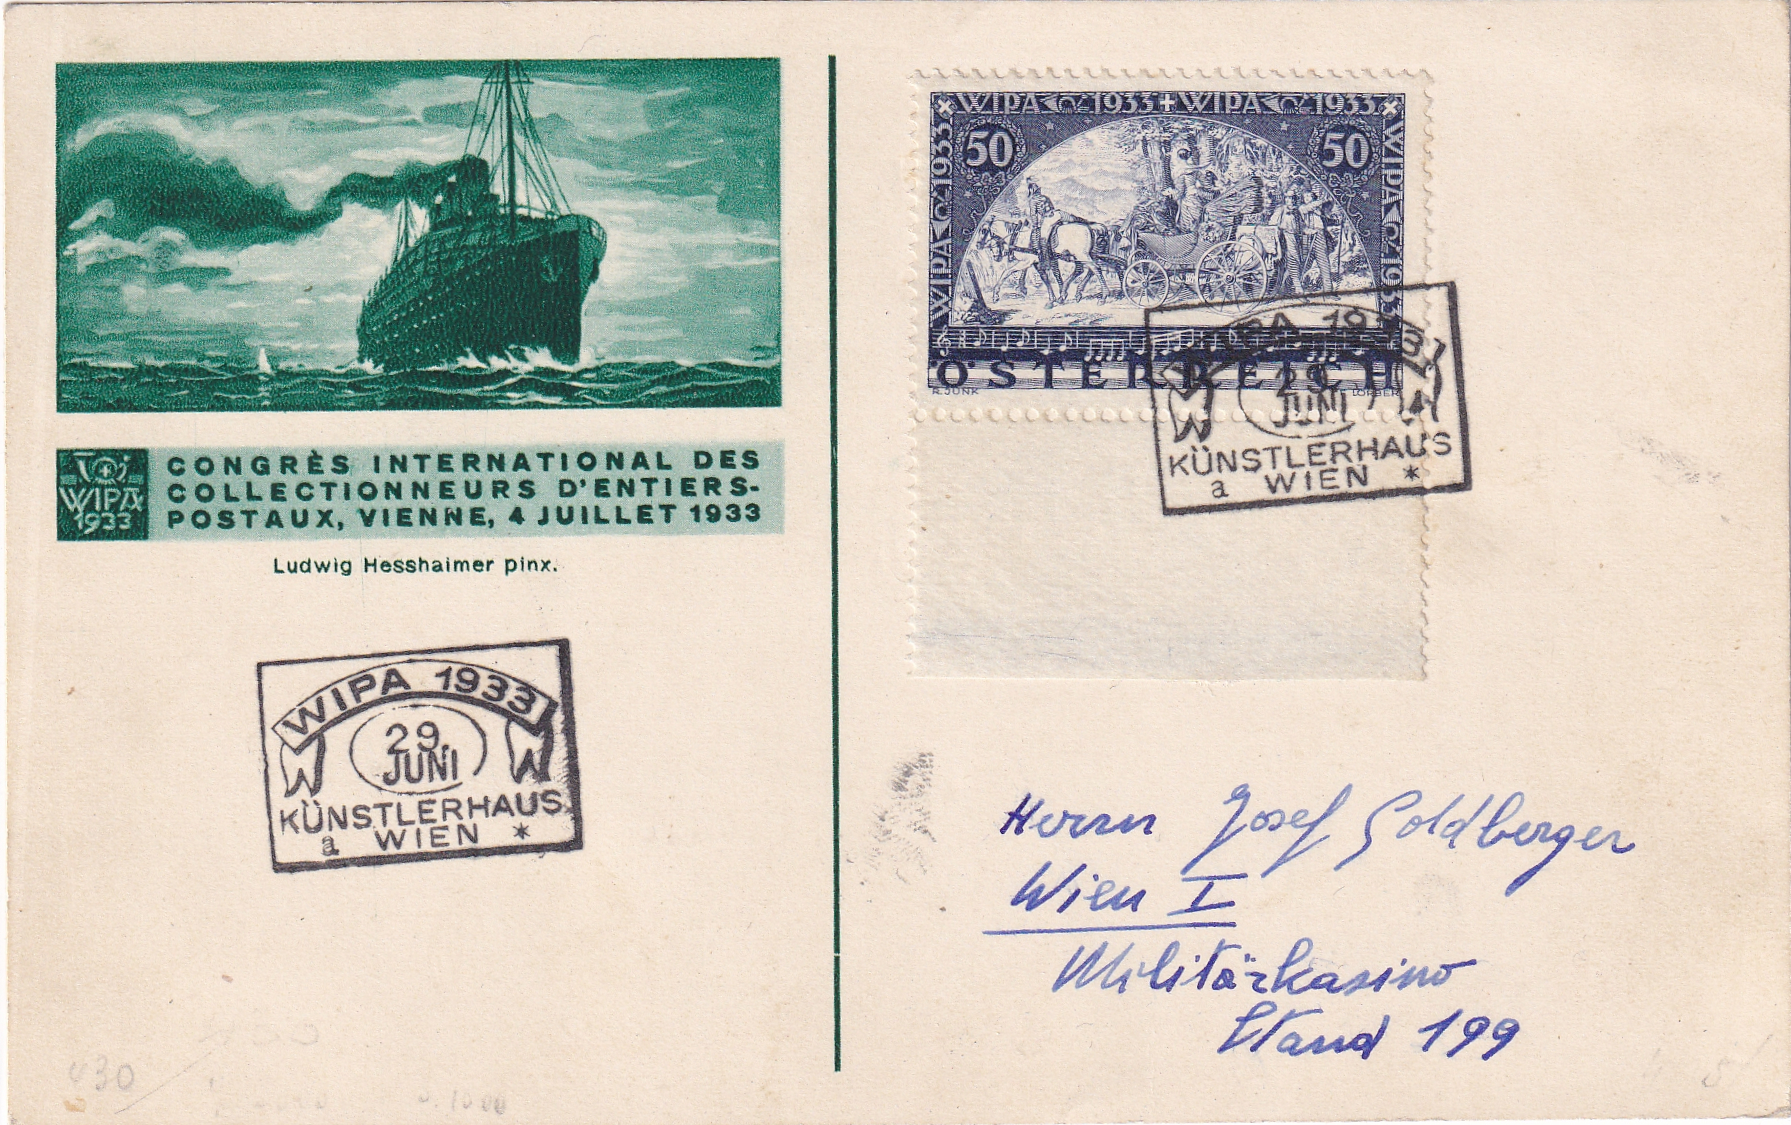 CONGRÈS INTERNATIONAL DES
COLLECTIONNEURS D'ENTIERS-
POSTAUX, VIENNE, 4 JUILLET 1933
WIPA
1933
Ludwig Hesshaimer pinx.
WIPA 1933
29.
JUNI
KÜNSTLERHAUS
a WIEN *
WIPA 1933 + WIPA 1933
WIPA 1933
WIPA 1933
50 50
ÖSTERREICH
R. JUNK LORBER
WIPA 1933
29.
JUNI
KÜNSTLERHAUS
a WIEN *
Herrn Josef Goldberger
Wien I
Militärkasino
Stand 199
430